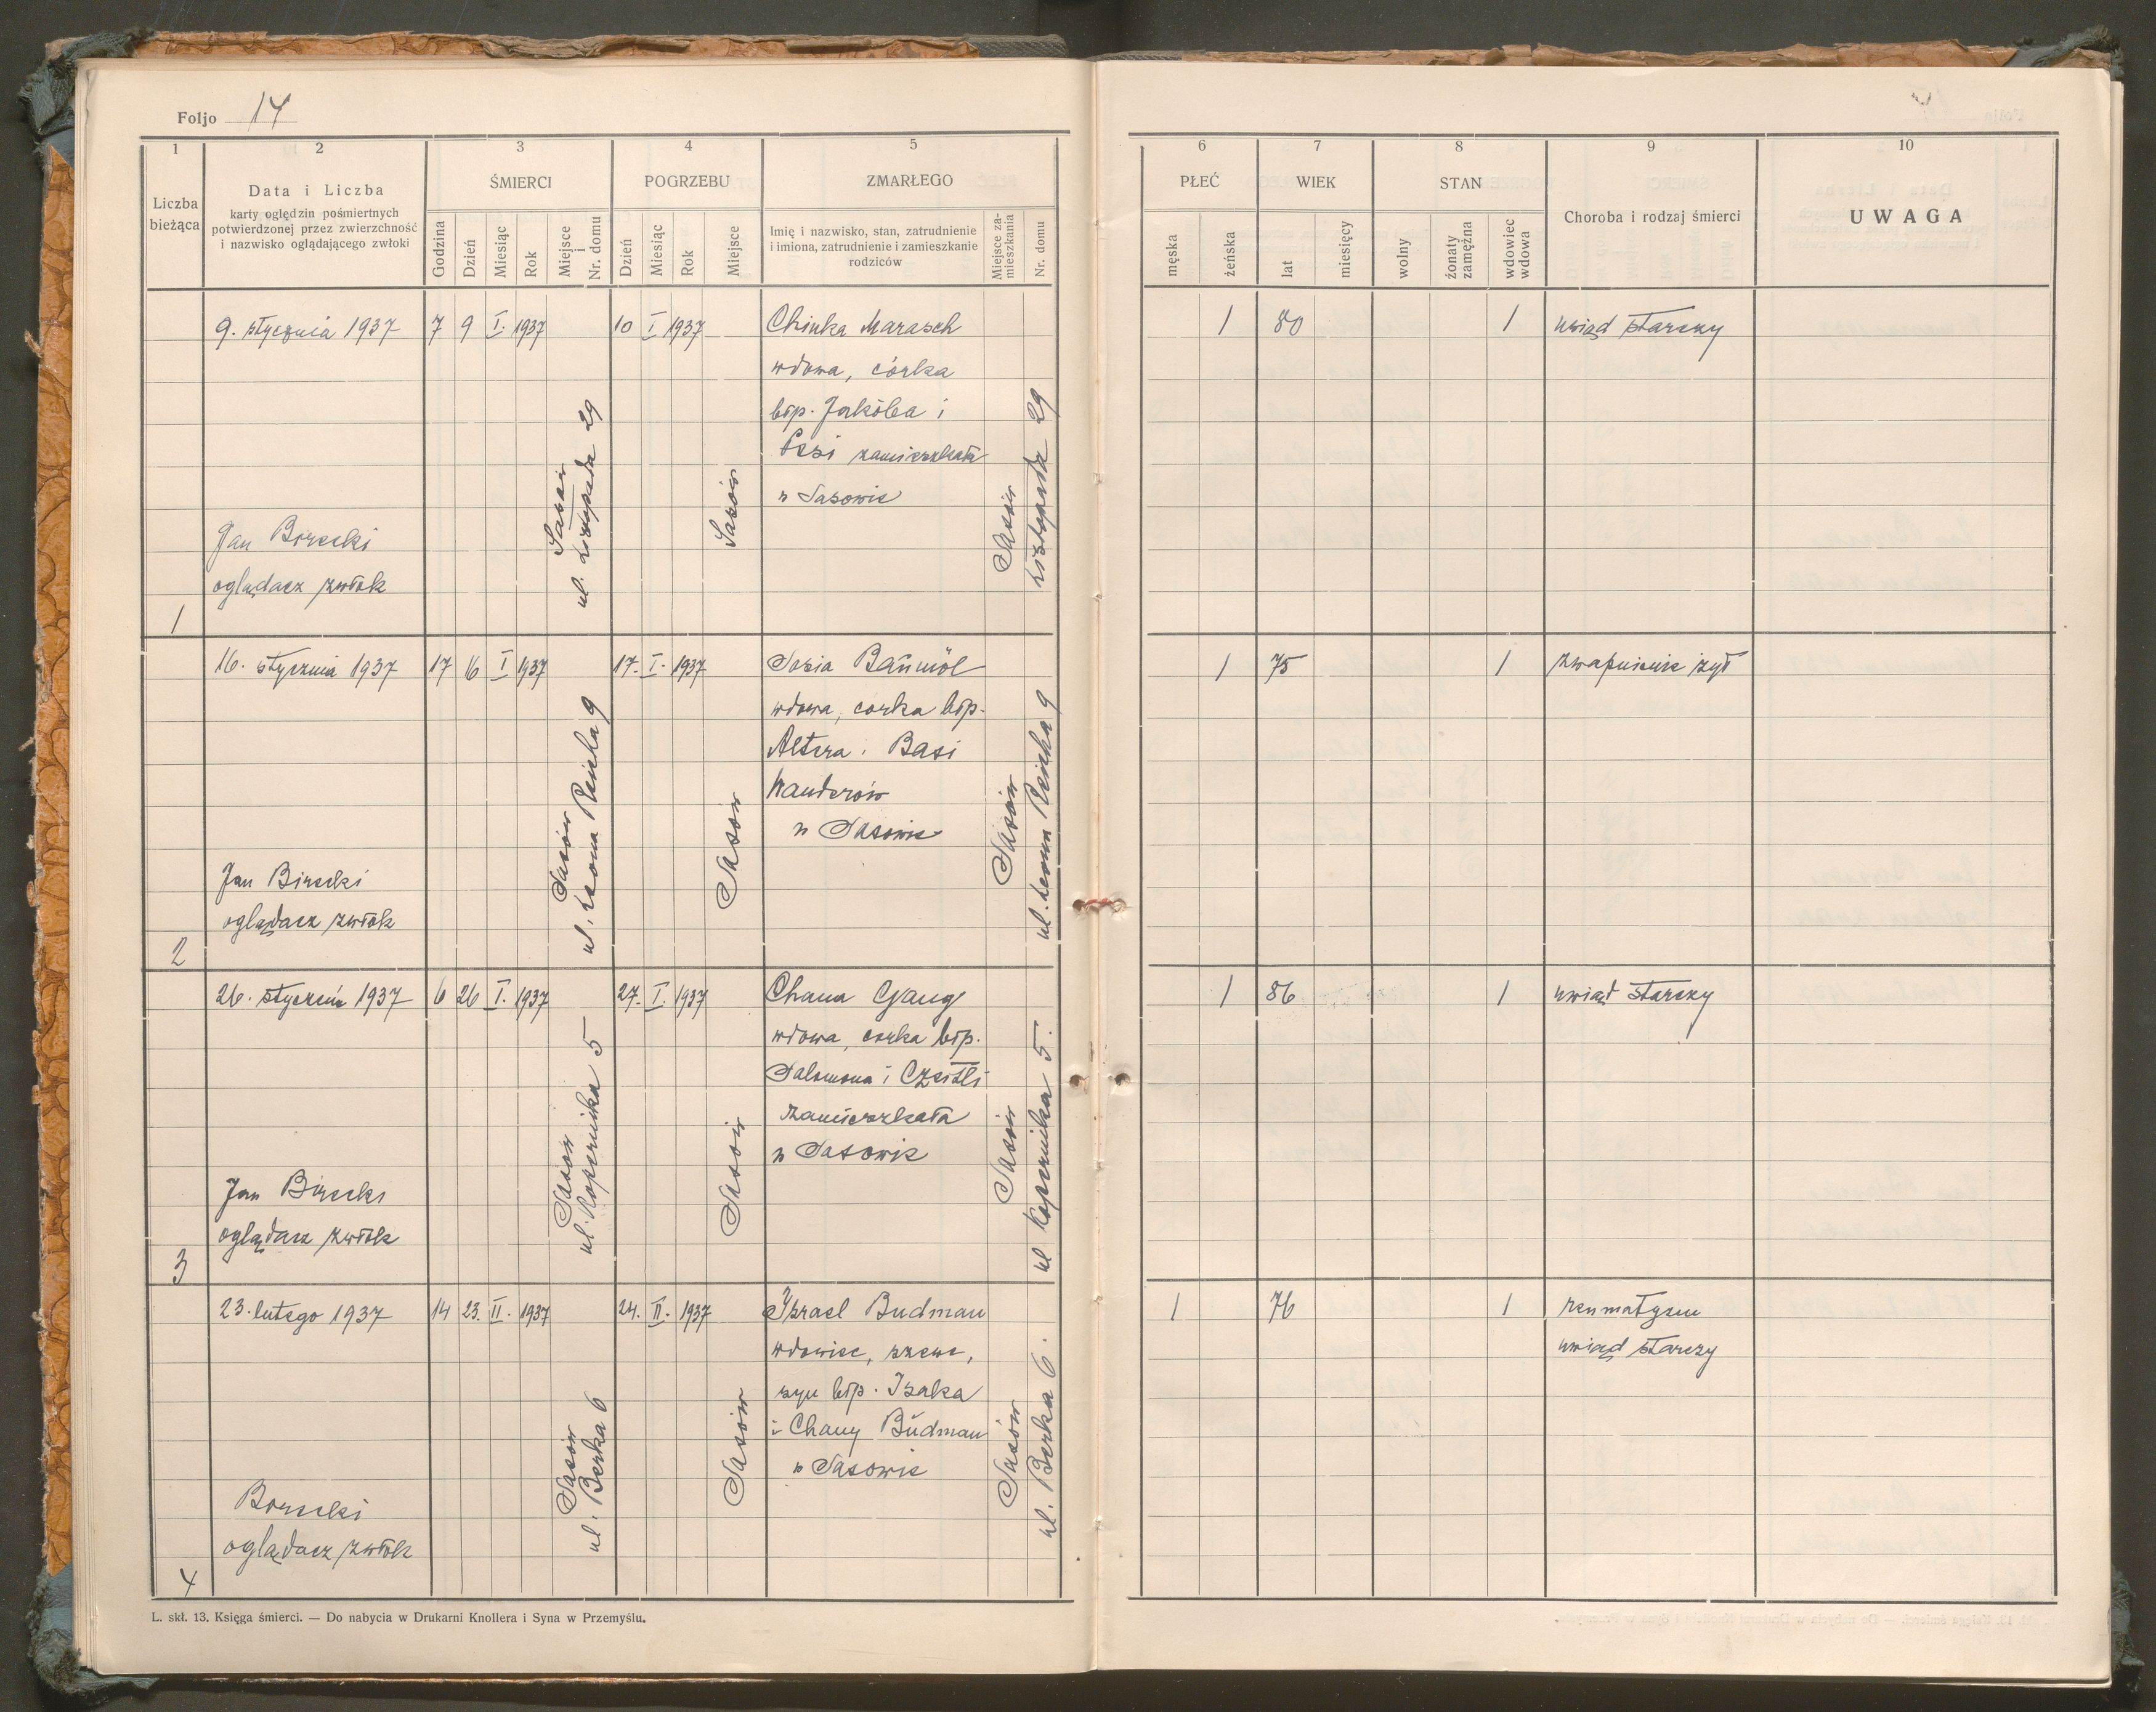 Foljo 14
1 2 3 4 5
Liczba bieżąca
Data i Liczba
karty oględzin pośmiertnych
potwierdzonej przez zwierzchność
i nazwisko oglądającego zwłoki
ŚMIERCI
Godzina Dzień Miesiąc Rok Miejsce i Nr. domu
POGRZEBU
Dzień Miesiąc Rok Miejsce
ZMARŁEGO
Imię i nazwisko, stan, zatrudnienie
i imiona, zatrudnienie i zamieszkanie
rodziców
Miejsce zamieszkania Nr. domu
6 7 8 9 10
PŁEĆ WIEK STAN
męska żeńska lat miesięcy wolny żonaty zamężna wdowiec wdowa
Choroba i rodzaj śmierci
UWAGA
9. stycznia 1937 7 9 I. 1937 10 I 1937 Chinka Marasch 1 80 1 uwiąd starczy
wdowa, córka
błp. Jakóba i
Pesi zamieszkała
w Sasowie
Sasów
ul. Listopada 29
Sasów
Sasów
Listopada 29
Jan Birecki
oglądacz zwłok
1
16. stycznia 1937 17 16 I 1937 17. I. 1937 Sosia Baŭmöl 1 75 1 zwapnienie żył
wdowa, corka błp.
Altera i Basi
Wanderów
w Sasowie
Sasów
ul. Leona Reicha 9
Sasów
Sasów
ul. Leona Reicha 9
Jan Birecki
oglądacz zwłok
2
26. styczeń 1937 6 26 I. 1937 27. I. 1937 Chana Gang 1 86 1 uwiąd starczy
wdowa, corka błp.
Salomona i Czeitli
zamieszkała
w Sasowie
Sasów
ul. Kopernika 5
Sasów
Sasów
ul Kopernika 5.
Jan Birecki
oglądacz zwłok
3
23. lutego 1937 14 23. II. 1937 24. II. 1937 Izrael Budman 1 76 1 reumatyzm
wdowiec, szewc, uwiąd starczy
syn błp. Izaka
i Chany Bŭdman
w Sasowie
Sasów
ul. Berka 6
Sasów
Sasów
ul. Berka 6.
Birecki
oglądacz zwłok
4
L. skł. 13. Księga śmierci. — Do nabycia w Drukarni Knollera i Syna w Przemyślu.